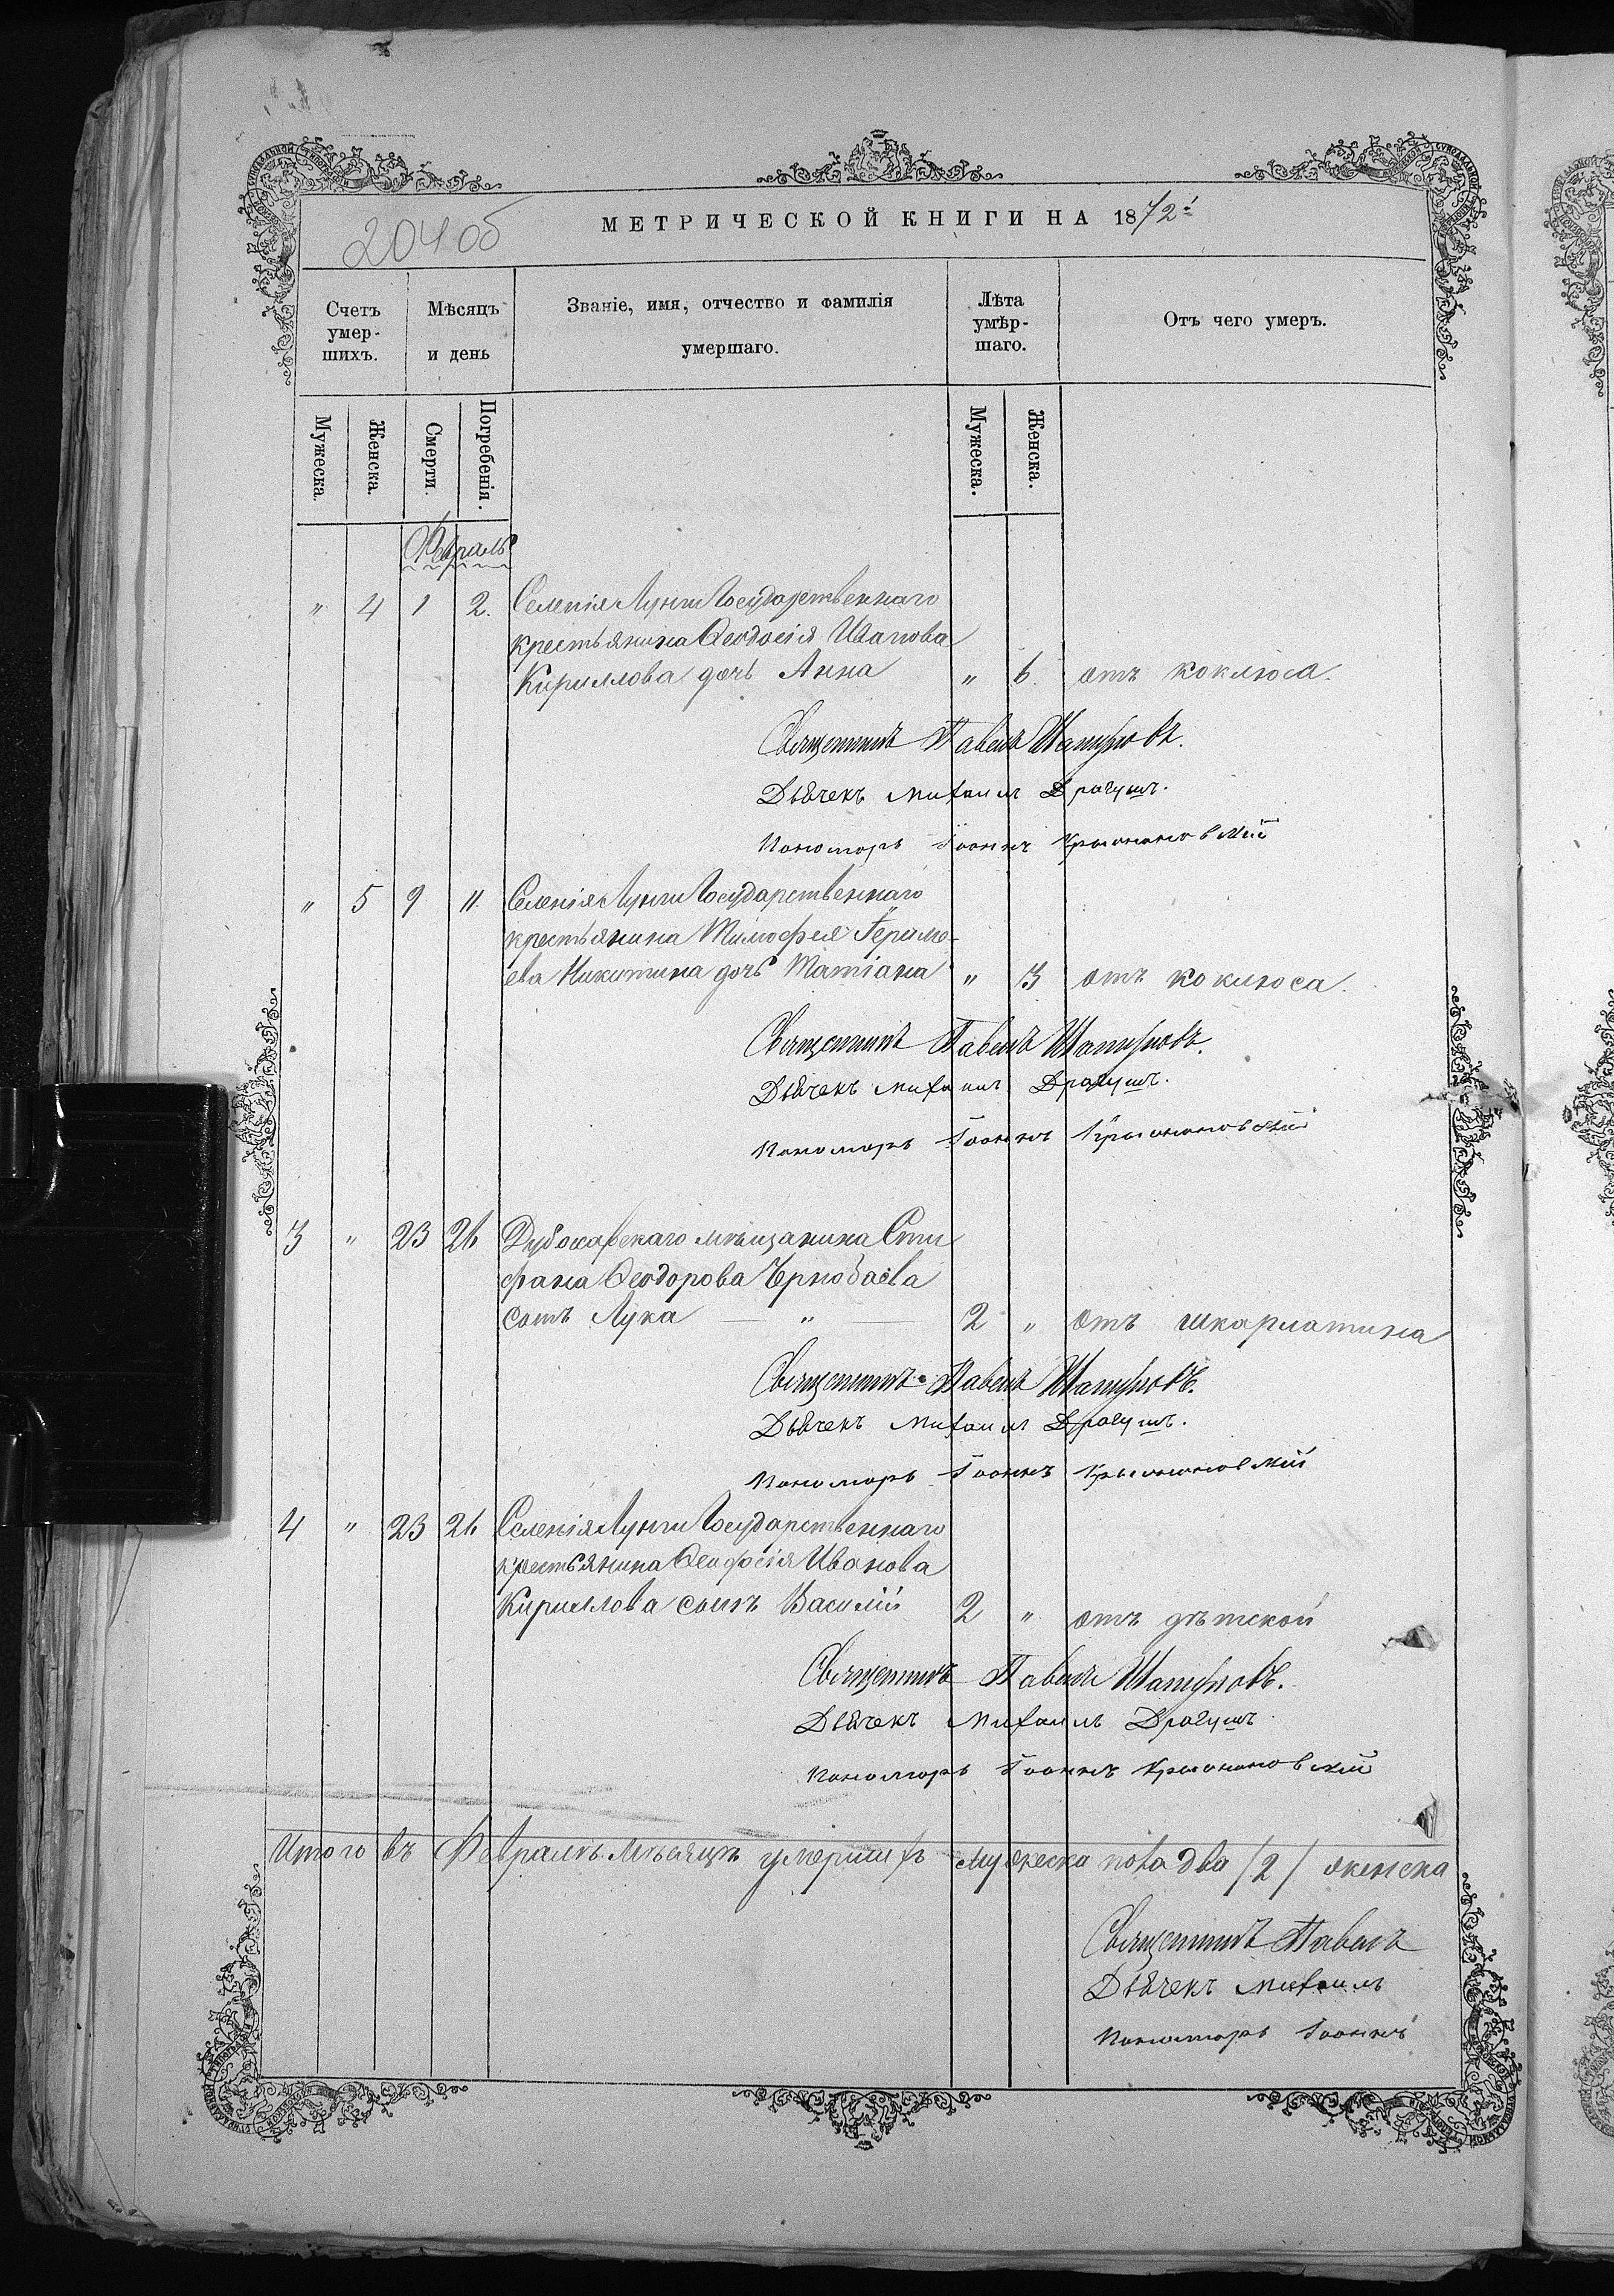 204 об
МЕТРИЧЕСКОЙ КНИГИ НА 1872й
Счетъ умерших.
Мѣсяцъ и день
Званіе, имя, отчество и фамилія умершаго.
Лѣта умѣршаго.
Отъ чего умеръ.
Мужеска.
Женска.
Смерти.
Погребенія.
Мужеска.
Женска.
Февраль
" 4 1 2. Селенія Лунги Государственнаго
крестьянина Ѳеодосія Иванова
Кириллова дочь Анна " 6 отъ коклюса.
Священникъ Павелъ
Дьячекъ Михаилъ Драгушъ.
Пономарь Іоаннъ Крыжановскій
" 5 9 11. Селенія Лунги Государственнаго
крестьянина Тимофея Гериме-
ева Никитина дочь Татіана " 3 отъ коклюса.
Священникъ Павелъ
Дьячекъ Михаилъ Драгушъ.
Пономарь Іоаннъ Крыжановскій
3 " 23 26 Дубосарскаго мѣщанина Сти
фана Ѳеодорова Чернобаева
сынъ Лука — " — 2 " отъ шкарлатина
Священникъ Павелъ
Дьячекъ Михаилъ Драгушъ.
Пономарь Іоаннъ Крыжановскій
4 " 23 26 Селенія Лунги Государственнаго
крестьянина Ѳеодосія Иванова
Кириллова сынъ Василій 2 " отъ дѣтской
Священникъ Павелъ
Дьячекъ Михаилъ Драгушъ
Пономарь Іоаннъ Крыжановскій
Итого въ Февралѣ мѣсяцѣ умершихъ мужеска пола два /2/ женска
Священникъ Павелъ
Дьячекъ Михаилъ
Пономарь Іоаннъ